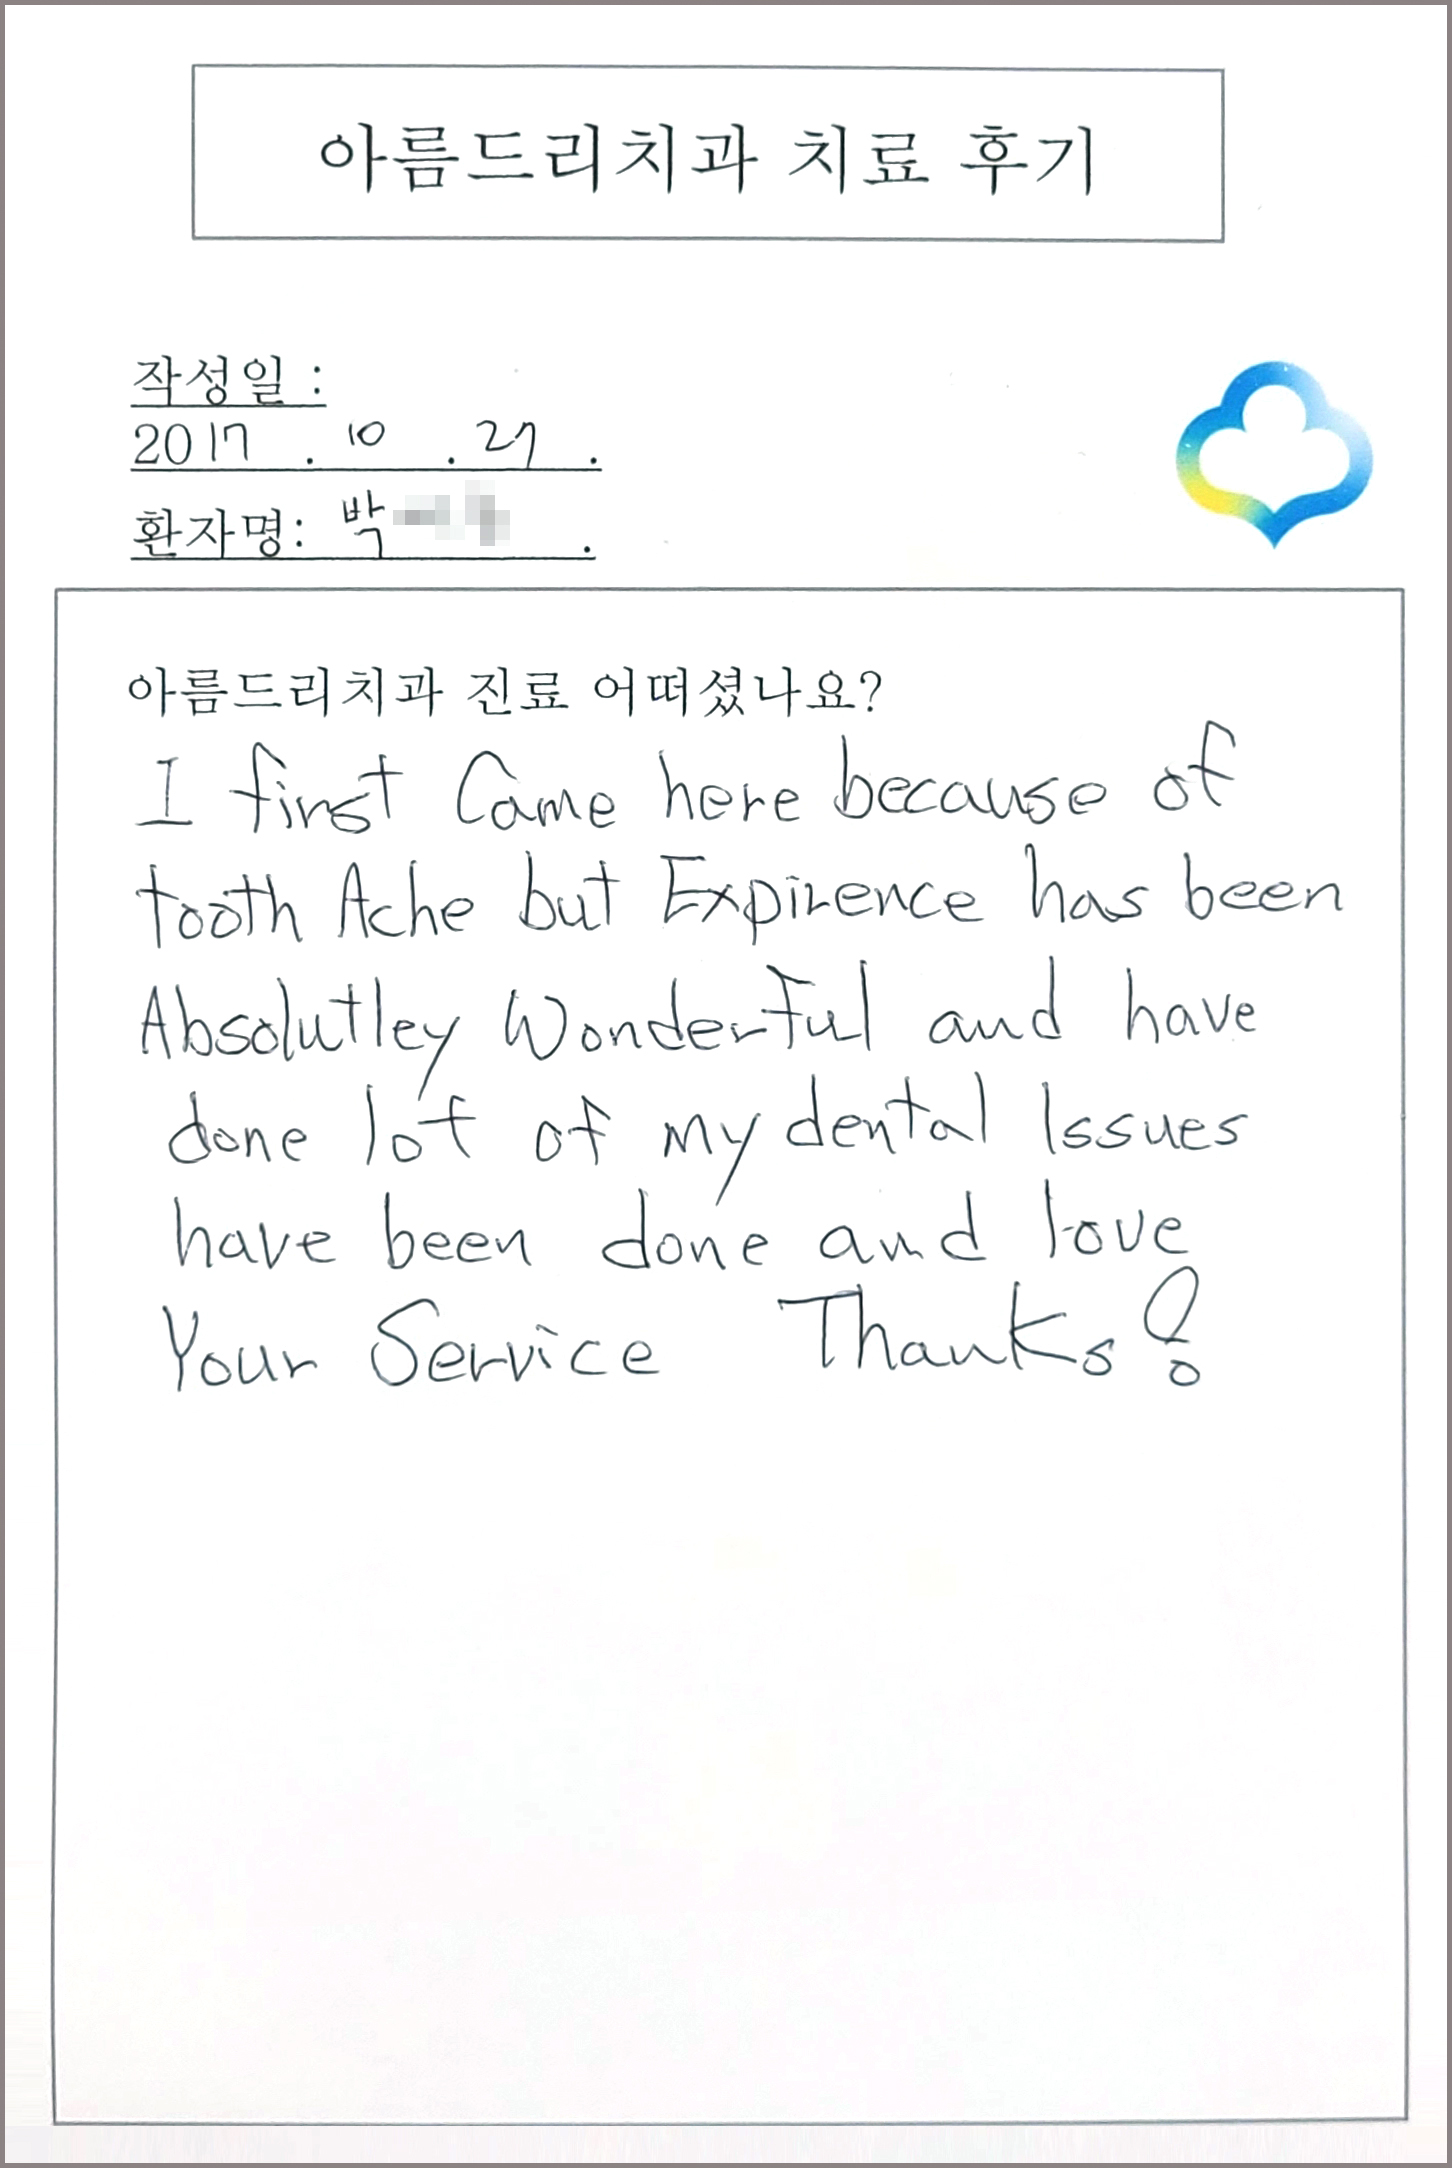 아름드리치과 치료 후기
작성일 :
2017 . 10 . 27 .
환자명: 박 .
아름드리치과 진료 어떠셨나요?
I first Came here because of
tooth Ache but Expirence has been
Absolutley Wonderful and have
done lot of my dental Issues
have been done and love
Your Service Thanks!